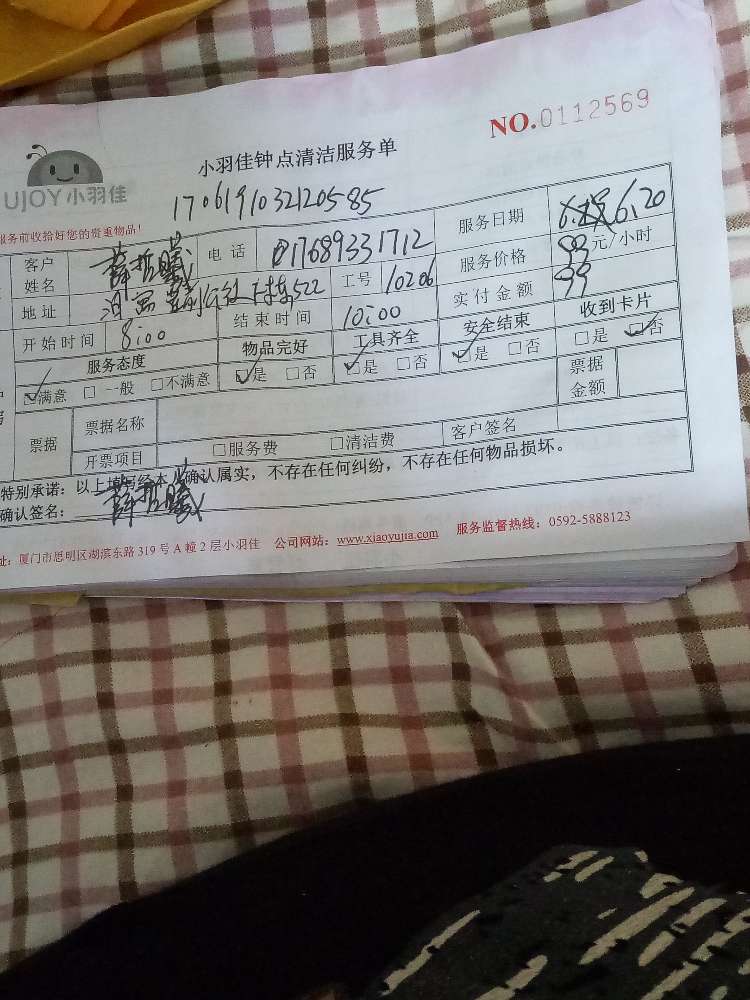 NO.0112569
小羽佳钟点清洁服务单
UJOY小羽佳
1706191032120585
服务前收拾好您的贵重物品!
客户姓名 薛哲曦 电话 17689331712 服务日期 6.20
地址 522 工号 10206 服务价格 99元/小时
开始时间 8:00 结束时间 10:00 实付金额 99
服务态度 物品完好 工具齐全 安全结束 收到卡片
☑满意 □一般 □不满意 ☑是 □否 ☑是 □否 ☑是 □否 □是 ☑否
票据 票据名称 票据金额
开票项目 □服务费 □清洁费 客户签名
特别承诺:以上填写经本人确认属实,不存在任何纠纷,不存在任何物品损坏。
确认签名: 薛哲曦
址:厦门市思明区湖滨东路319号A幢2层小羽佳 公司网站:www.xiaoyujia.com 服务监督热线:0592-5888123